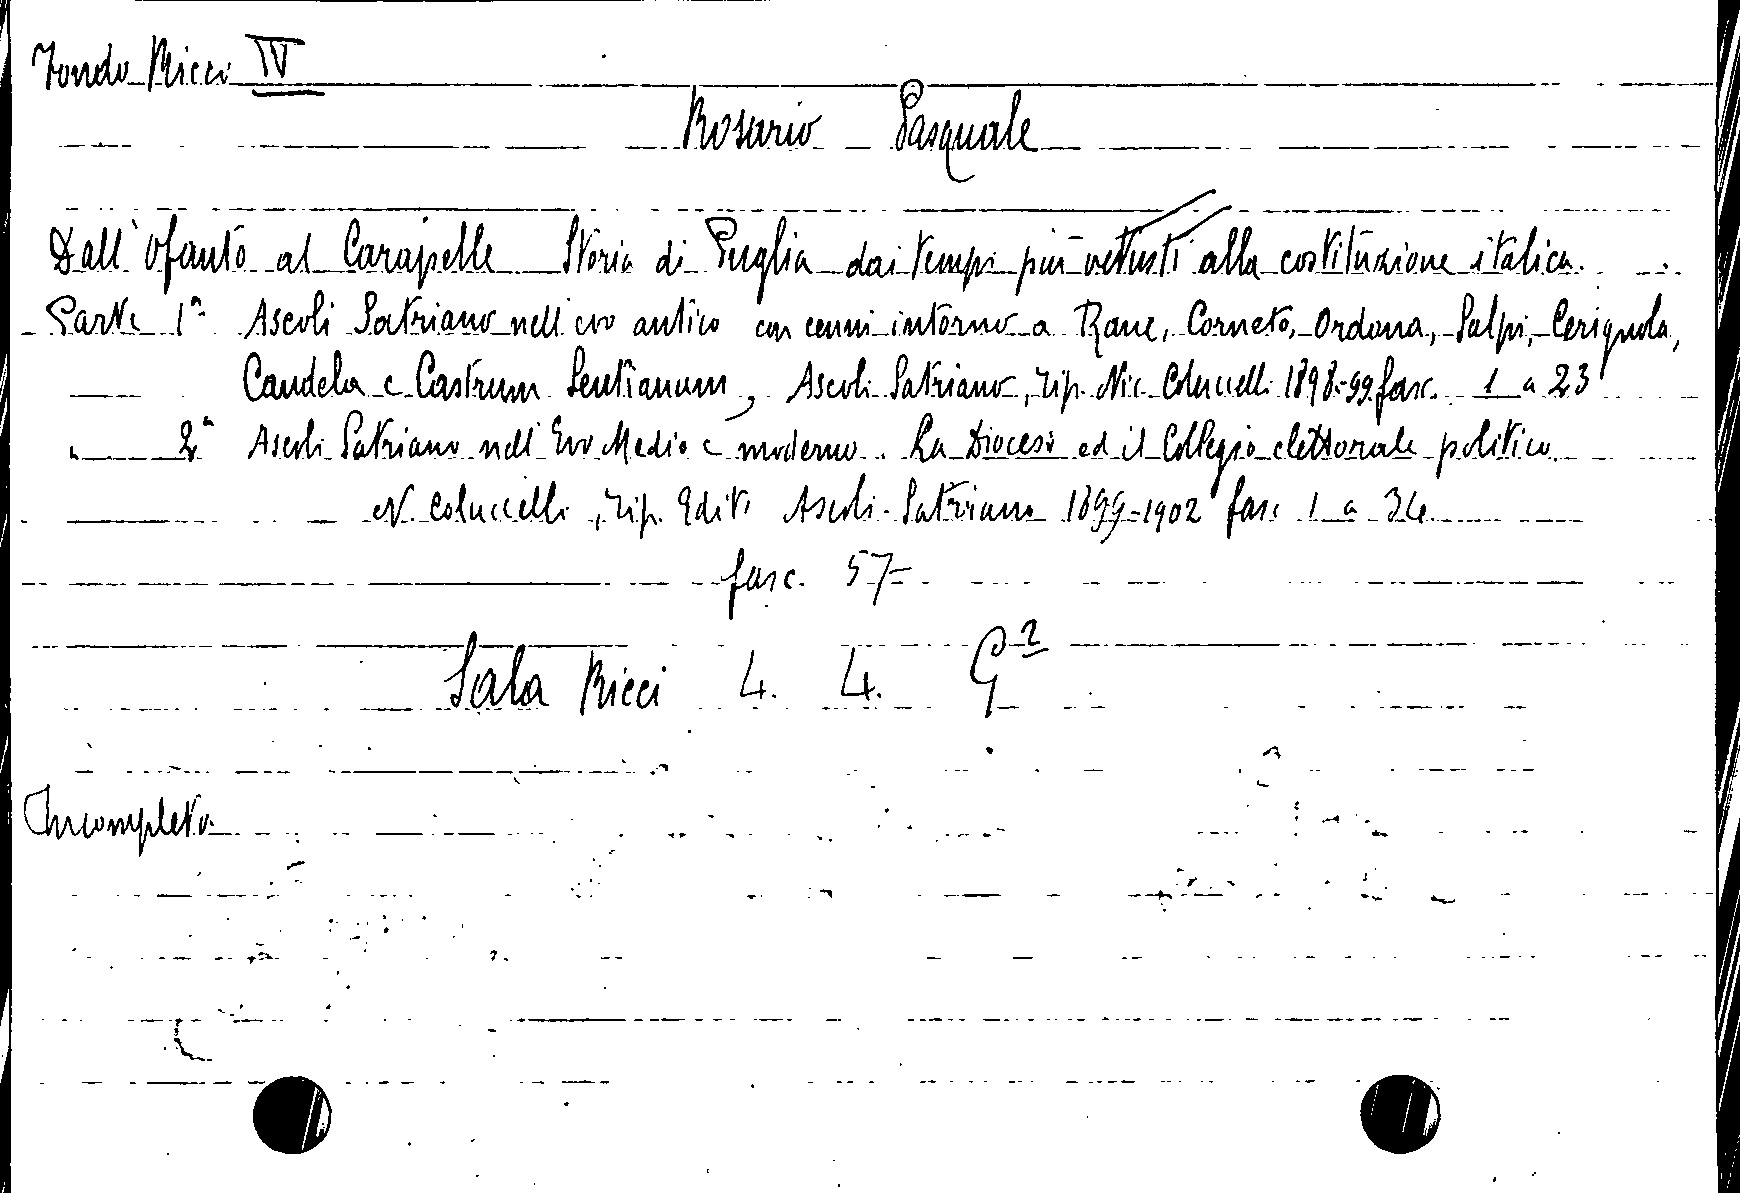 Fondo Ricci IV
Rosario Pasquale
Dall'Ofanto al Carapelle Storia di Puglia dai tempi più vetusti alla costituzione italica.
Parte 1ª Ascoli Satriano nell'evo antico con cenni intorno a Corneto, Ordona, Salpi, Cerignola,
Candela e Castrum Sentianum, Ascoli Satriano, Tip. Nic. Coluccelli 1898-99 fasc. 1 a 23
" 2ª Ascoli Satriano nell'Evo Medio e moderno. La Diocesi ed il Collegio elettorale politico.
N. Coluccelli, Tip. Edit. Ascoli-Satriano 1899-1902 fasc 1 a 34
fasc. 57
Sala Ricci 4. 4. G²
Incompleto